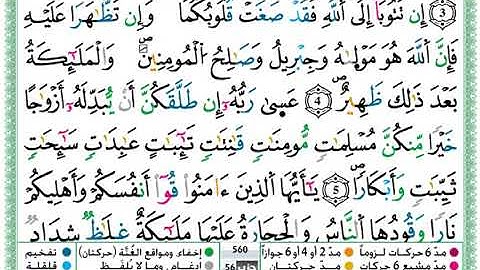 ٣ إِن تَتُوبَآ إِلَى ٱللَّهِ فَقَدْ صَغَتْ قُلُوبُكُمَا ۖ وَإِن تَظَّٰهَرَا عَلَيْهِ
فَإِنَّ ٱللَّهَ هُوَ مَوْلَىٰهُ وَجِبْرِيلُ وَصَٰلِحُ ٱلْمُومِنِينَ ۖ وَٱلْمَلَٰٓئِكَةُ
بَعْدَ ذَٰلِكَ ظَهِيرٌ ۖ 4 عَسَىٰ رَبُّهُۥٓ إِن طَلَّقَكُنَّ أَنْ يُّبَدِّلَهُۥٓ أَزْوَٰجًا
خَيْرًا مِّنكُنَّ مُسْلِمَٰتٍ مُّومِنَٰتٍ قَٰنِتَٰتٍ تَٰٓئِبَٰتٍ عَٰبِدَٰتٍ سَٰٓئِحَٰتٍ
ثَيِّبَٰتٍ وَأَبْكَارًا ۖ 5 يَٰٓأَيُّهَا ٱلَّذِينَ ءَامَنُوا۟ قُوٓا۟ أَنفُسَكُمْ وَأَهْلِيكُمْ
نَارًا وَقُودُهَا ٱلنَّاسُ وَٱلْحِجَارَةُ عَلَيْهَا مَلَٰٓئِكَةٌ غِلَٰظٌ شِدَادٌ
مدّ 6 حركات لزوماً مدّ 2 أو 4 أو 6 جوازاً 560 إخفاء، ومواقع الغُنَّة (حركتان) تفخيم
مدّ مشبع 6 حركات مدّ حركتان 56 إدغام، وما لا يُلفَظ قلقلة